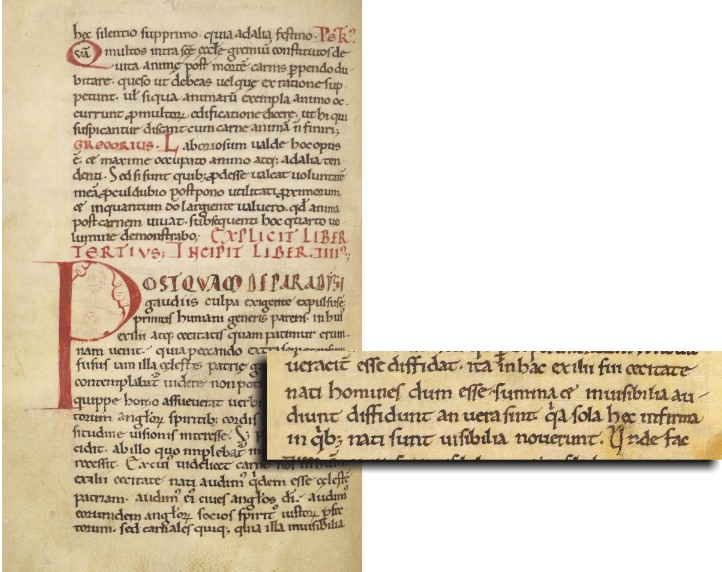 hec silentio supprimo. quia ad alia festino. PETR̄.
Qvā multos intra scē eccłe gremiū constitutos de
vita animę post mortē carnis ꝑpendo du
bitare. queso ut debeas uel quę ex ratione sup
petunt. ul siqua animarū exempla animo oc
currunt ꝓ multorꝝ edificatione dicere. ut hi qui
suspicantur discant cum carne animā n̄ finiri;
GREGORIUS. Laboriosum valde hoc opus
ē. & maxime occupato animo atq; ad alia ten
denti. Sed si sunt quib; ꝓdesse valeat voluntatē
meā ꝓculdubio postpono utilitati ꝓximorum
& inquantum dō largiente valuero. qđ anima
post carnem vivat. subsequenti hoc quarto vo
lumine demonstrabo; EXPLICIT LIBER
TERTIUS; INCIPIT LIBER. IIII;
POSTQUAM DE PARADYSI
gaudiis culpa exigente expulsus ē
primus humani generis parens in hui
exilii atq; cecitatis quam patimur erum
nam uenit. quia peccando extra
fusus iam illa celestis patrie
contemplabat uidere non pot
quippe homo assueuerat uerb
torum anglorꝝ spiritib; cordis
situdine uisionis interesse. S
cidit. ab illo quo implebat m
recessit. Ex cui videlicet carne nos in hui
exilii cecitate nati audim qdem esse celestē
patriam. audim ei ciues anglos dī. audim
eorumdem anglorꝝ socios spiritus iustorꝝ ꝑfec
torum. sed carnales quiq; quia illa inuisibilia
ueracit esse diffidat. ita in hac exilii sui cecitate
nati homines dum esse summa & inuisibilia au
diunt diffidunt an uera sint. qa sola hec infirma
in qb; nati sunt uisibilia nouerunt. Unde fac